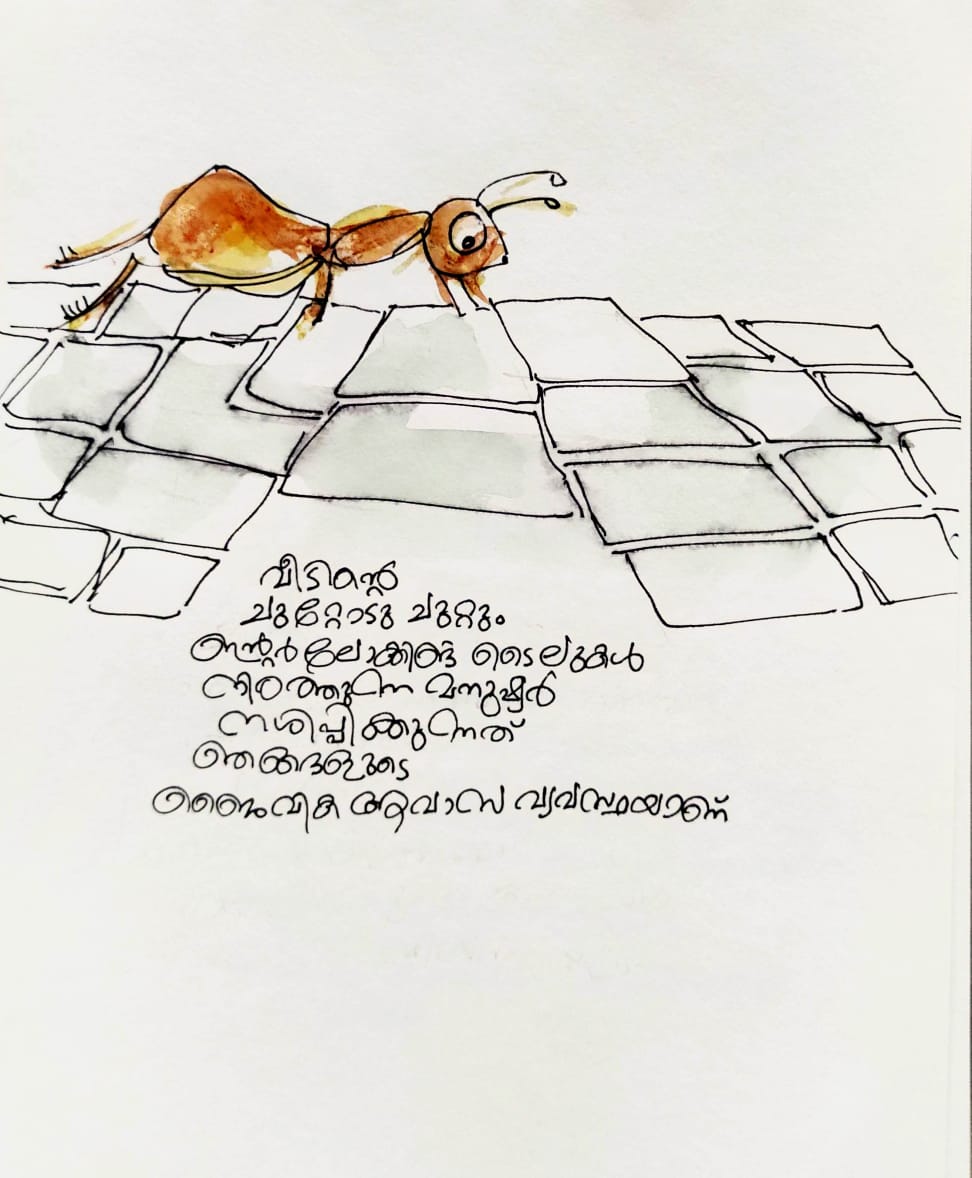 വീടിന്റെ
ചുറ്റോടു ചുറ്റും
ഇന്റർലോക്കിങ്ങ് ടൈലുകൾ
നിരത്തുന്ന മനുഷ്യർ
നശിപ്പിക്കുന്നത്
ഞങ്ങളുടെ
ജൈവിക ആവാസ വ്യവസ്ഥയാണ്